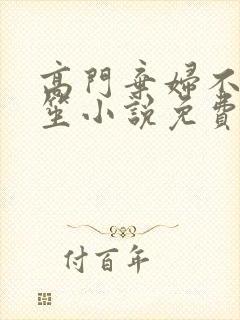 高門棄婦不
笙小說免費
付百年